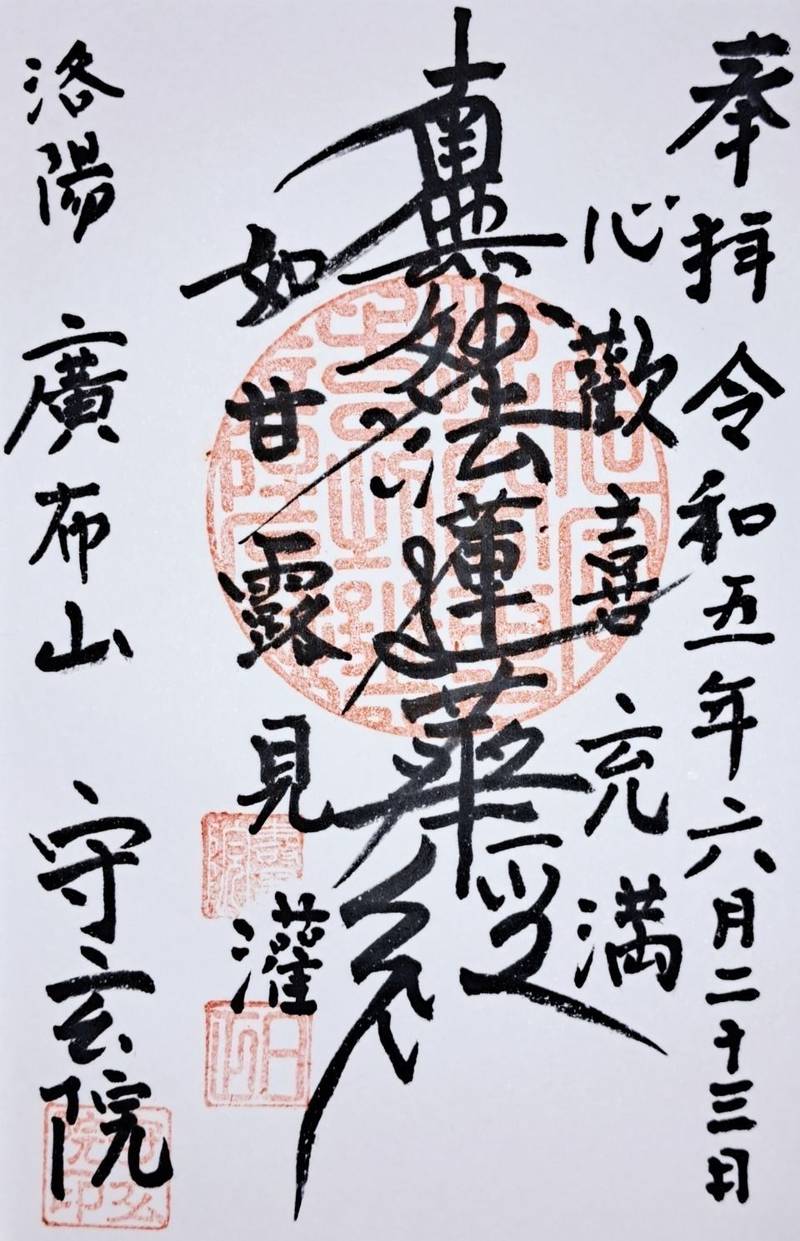 奉拝 令和五年六月二十三日
心歡喜充満
南無妙法蓮華經
如甘露見灌
洛陽 廣布山 守玄院